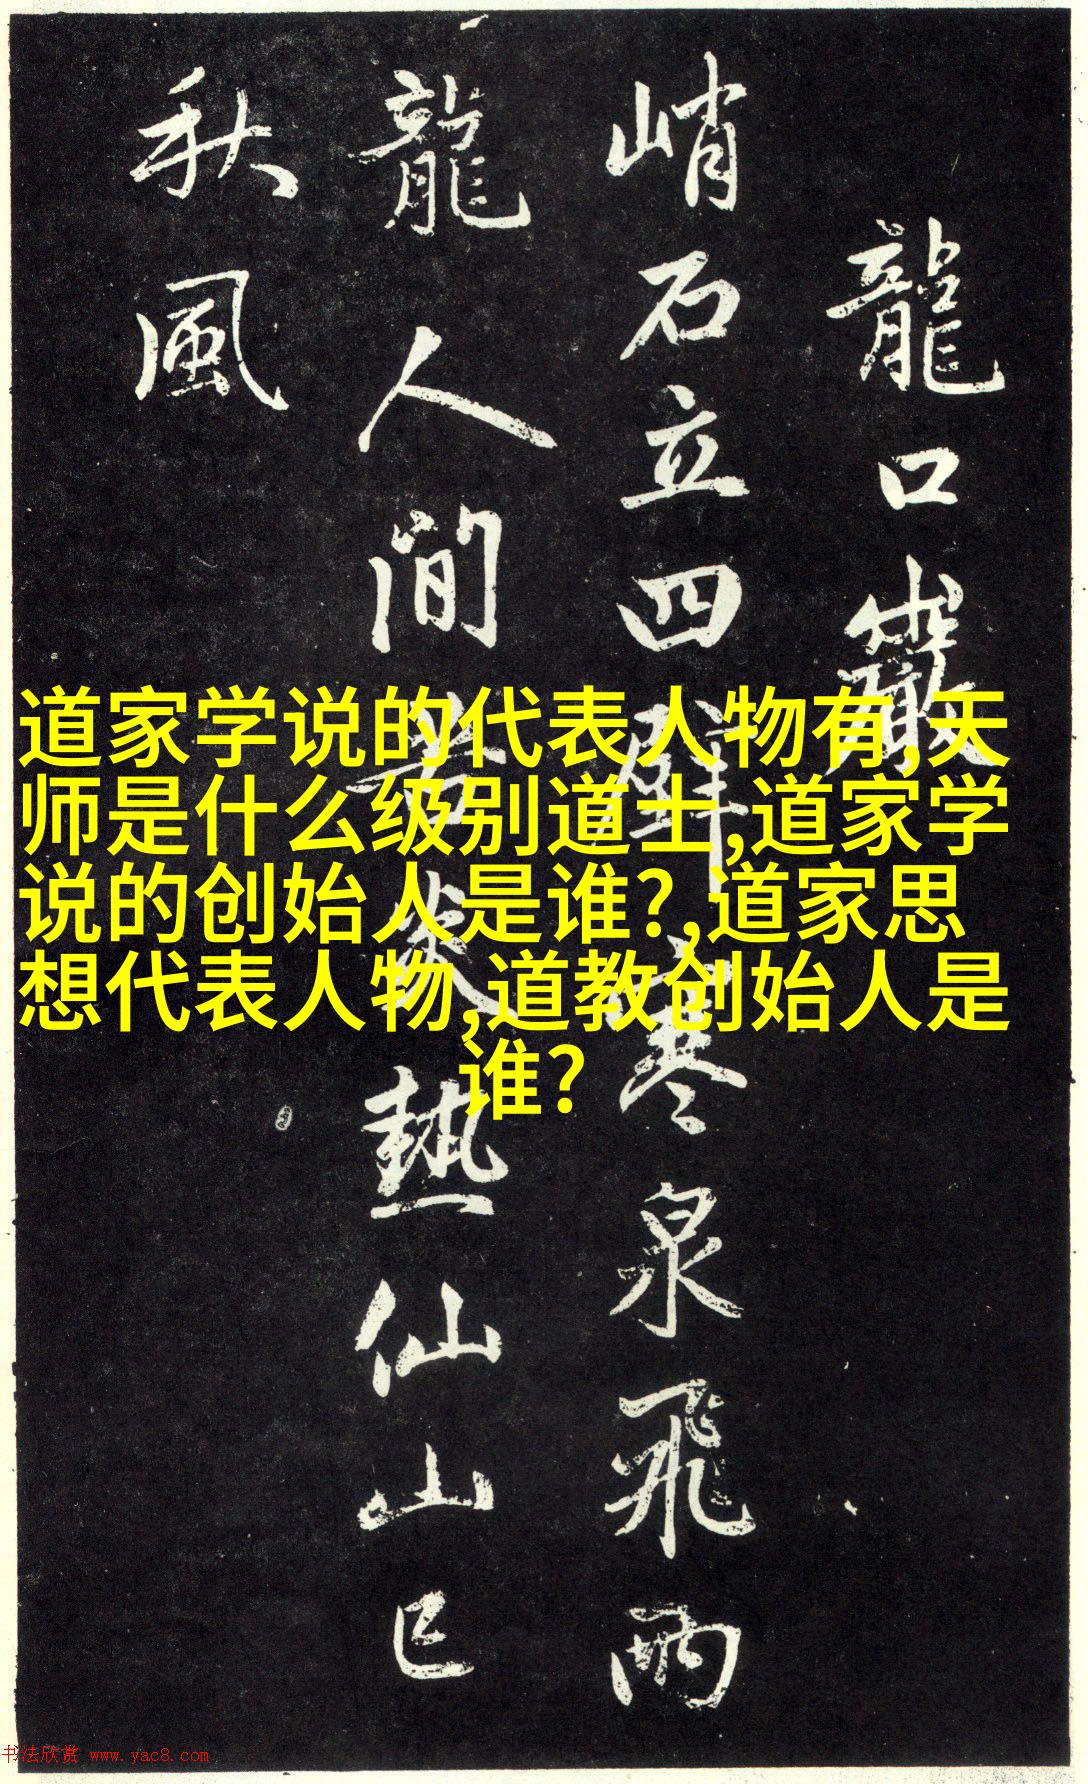 龍口巖
峭石立四壁寒泉飛兩
龍人間苦炎熱仙山已
秋風
道家学说的代表人物有,天
师是什么级别道士,道家学
说的创始人是谁?,道家思
想代表人物,道教创始人是
谁?
书法欣赏 www.yac8.com